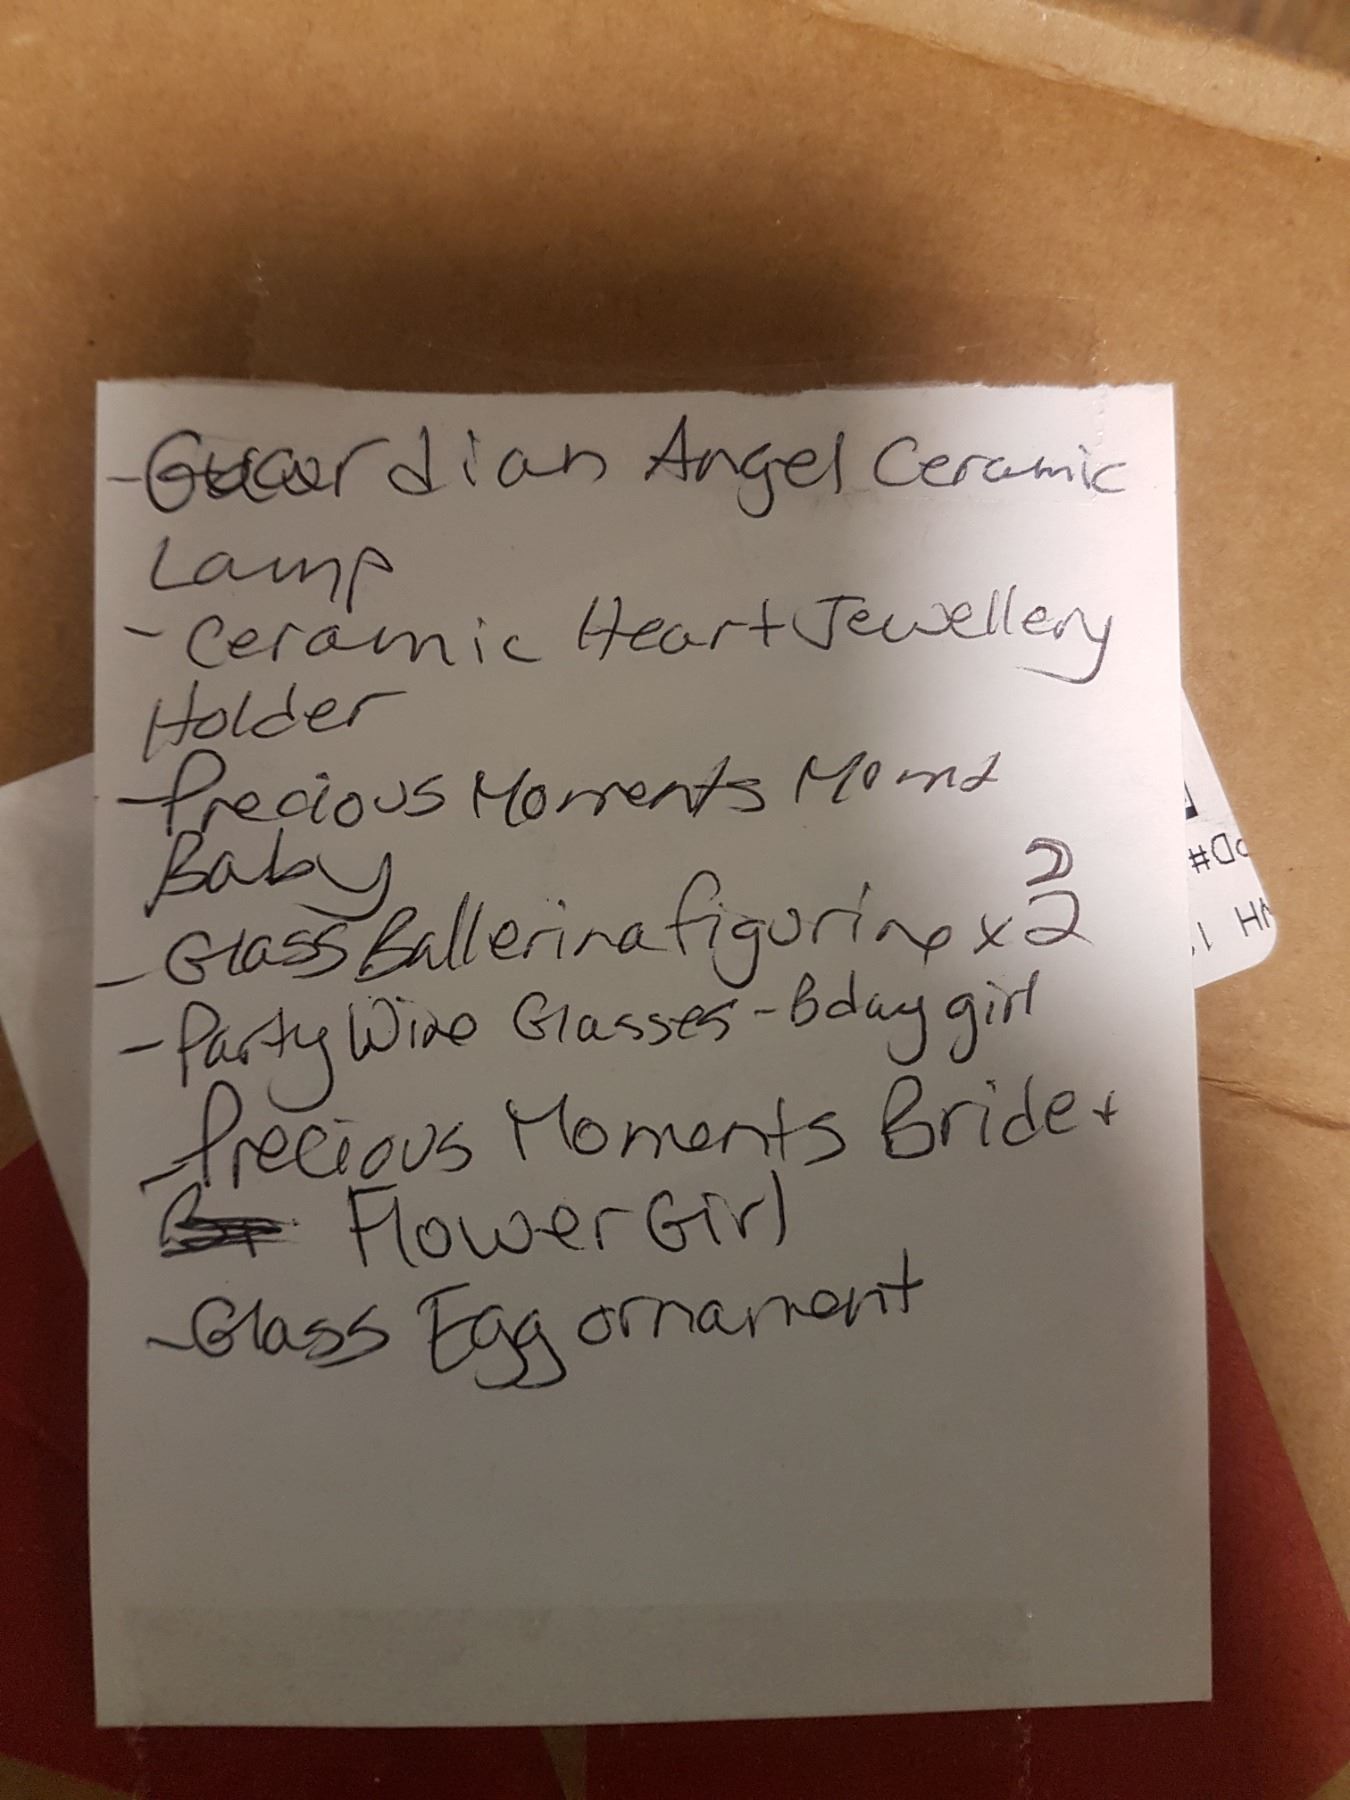 - Guardian Angel Ceramic
Lamp
- Ceramic Heart Jewellery
Holder
- Precious Moments Mom &
Baby
2
- Glass Ballerina figurine x 2
- Party Wine Glasses - Bday girl
- Precious Moments Bride +
Flower Girl
- Glass Egg ornament
PD#
WH 1